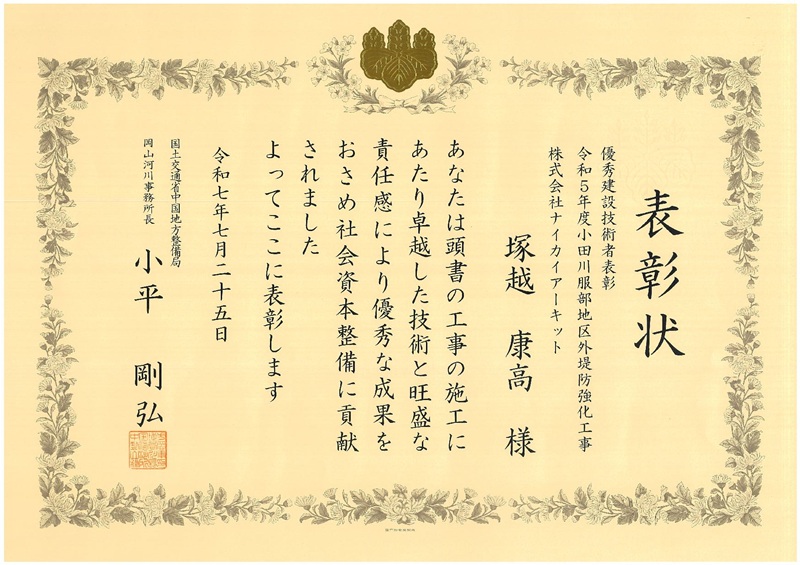 表彰状
優秀建設技術者表彰
令和5年度小田川服部地区外堤防強化工事
株式会社ナイカイアーキット
塚越 康高 様
あなたは頭書の工事の施工に
あたり卓越した技術と旺盛な
責任感により優秀な成果を
おさめ社会資本整備に貢献
されました
よってここに表彰します
令和七年七月二十五日
国土交通省中国地方整備局
岡山河川事務所長
小平 剛弘